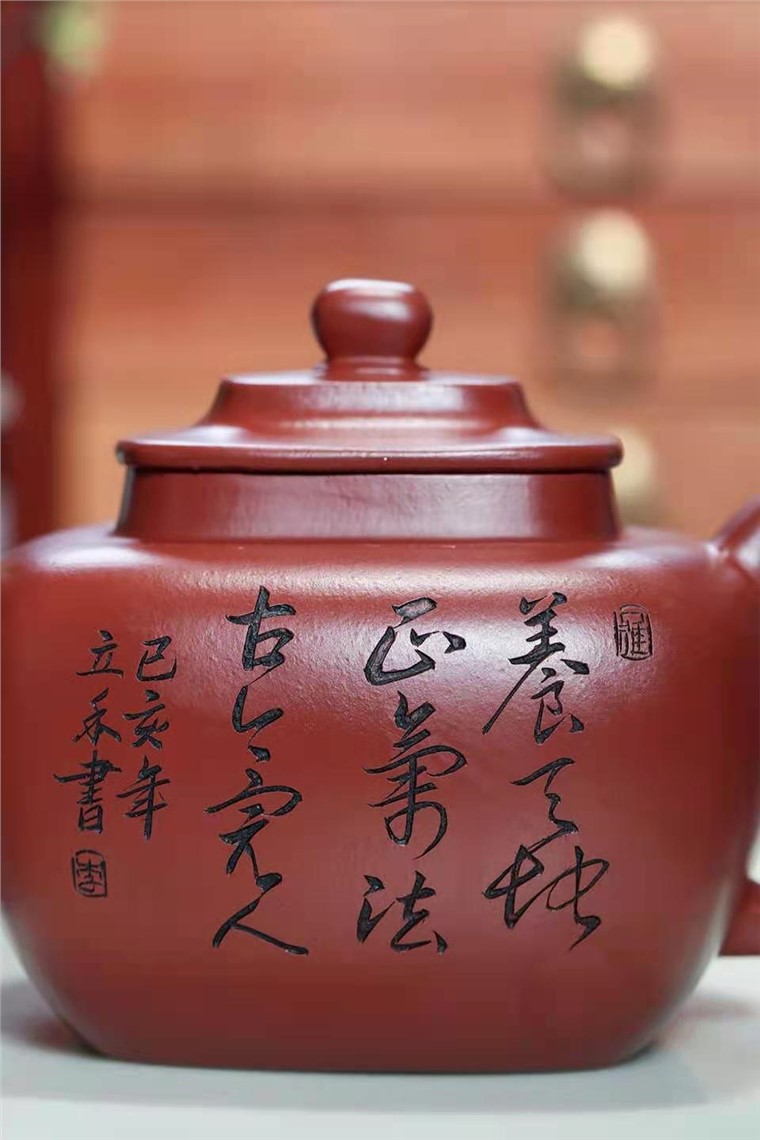 養天地
正氣法
古今完人
己亥年
立禾書